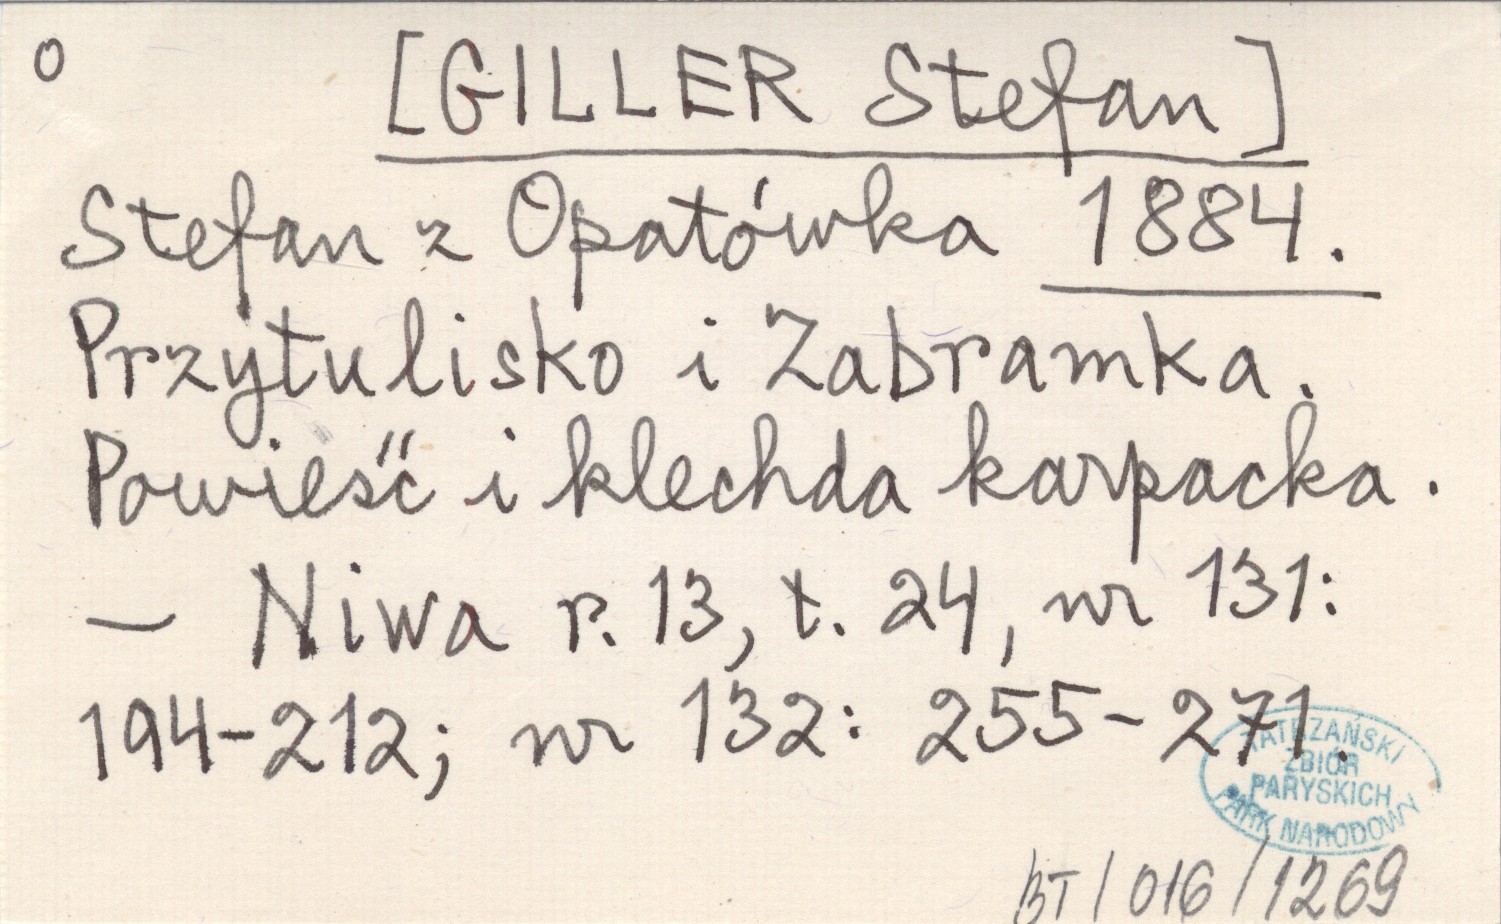 o
[GILLER Stefan]
Stefan z Opatówka 1884.
Przytulisko i Zabramka.
Powieść i klechda karpacka.
— Niwa r. 13, t. 24, nr 131:
194-212; nr 132: 255-271.
TATRZAŃSKI
ZBIÓR
PARYSKICH
PARK NARODOWY
BT/016/1269